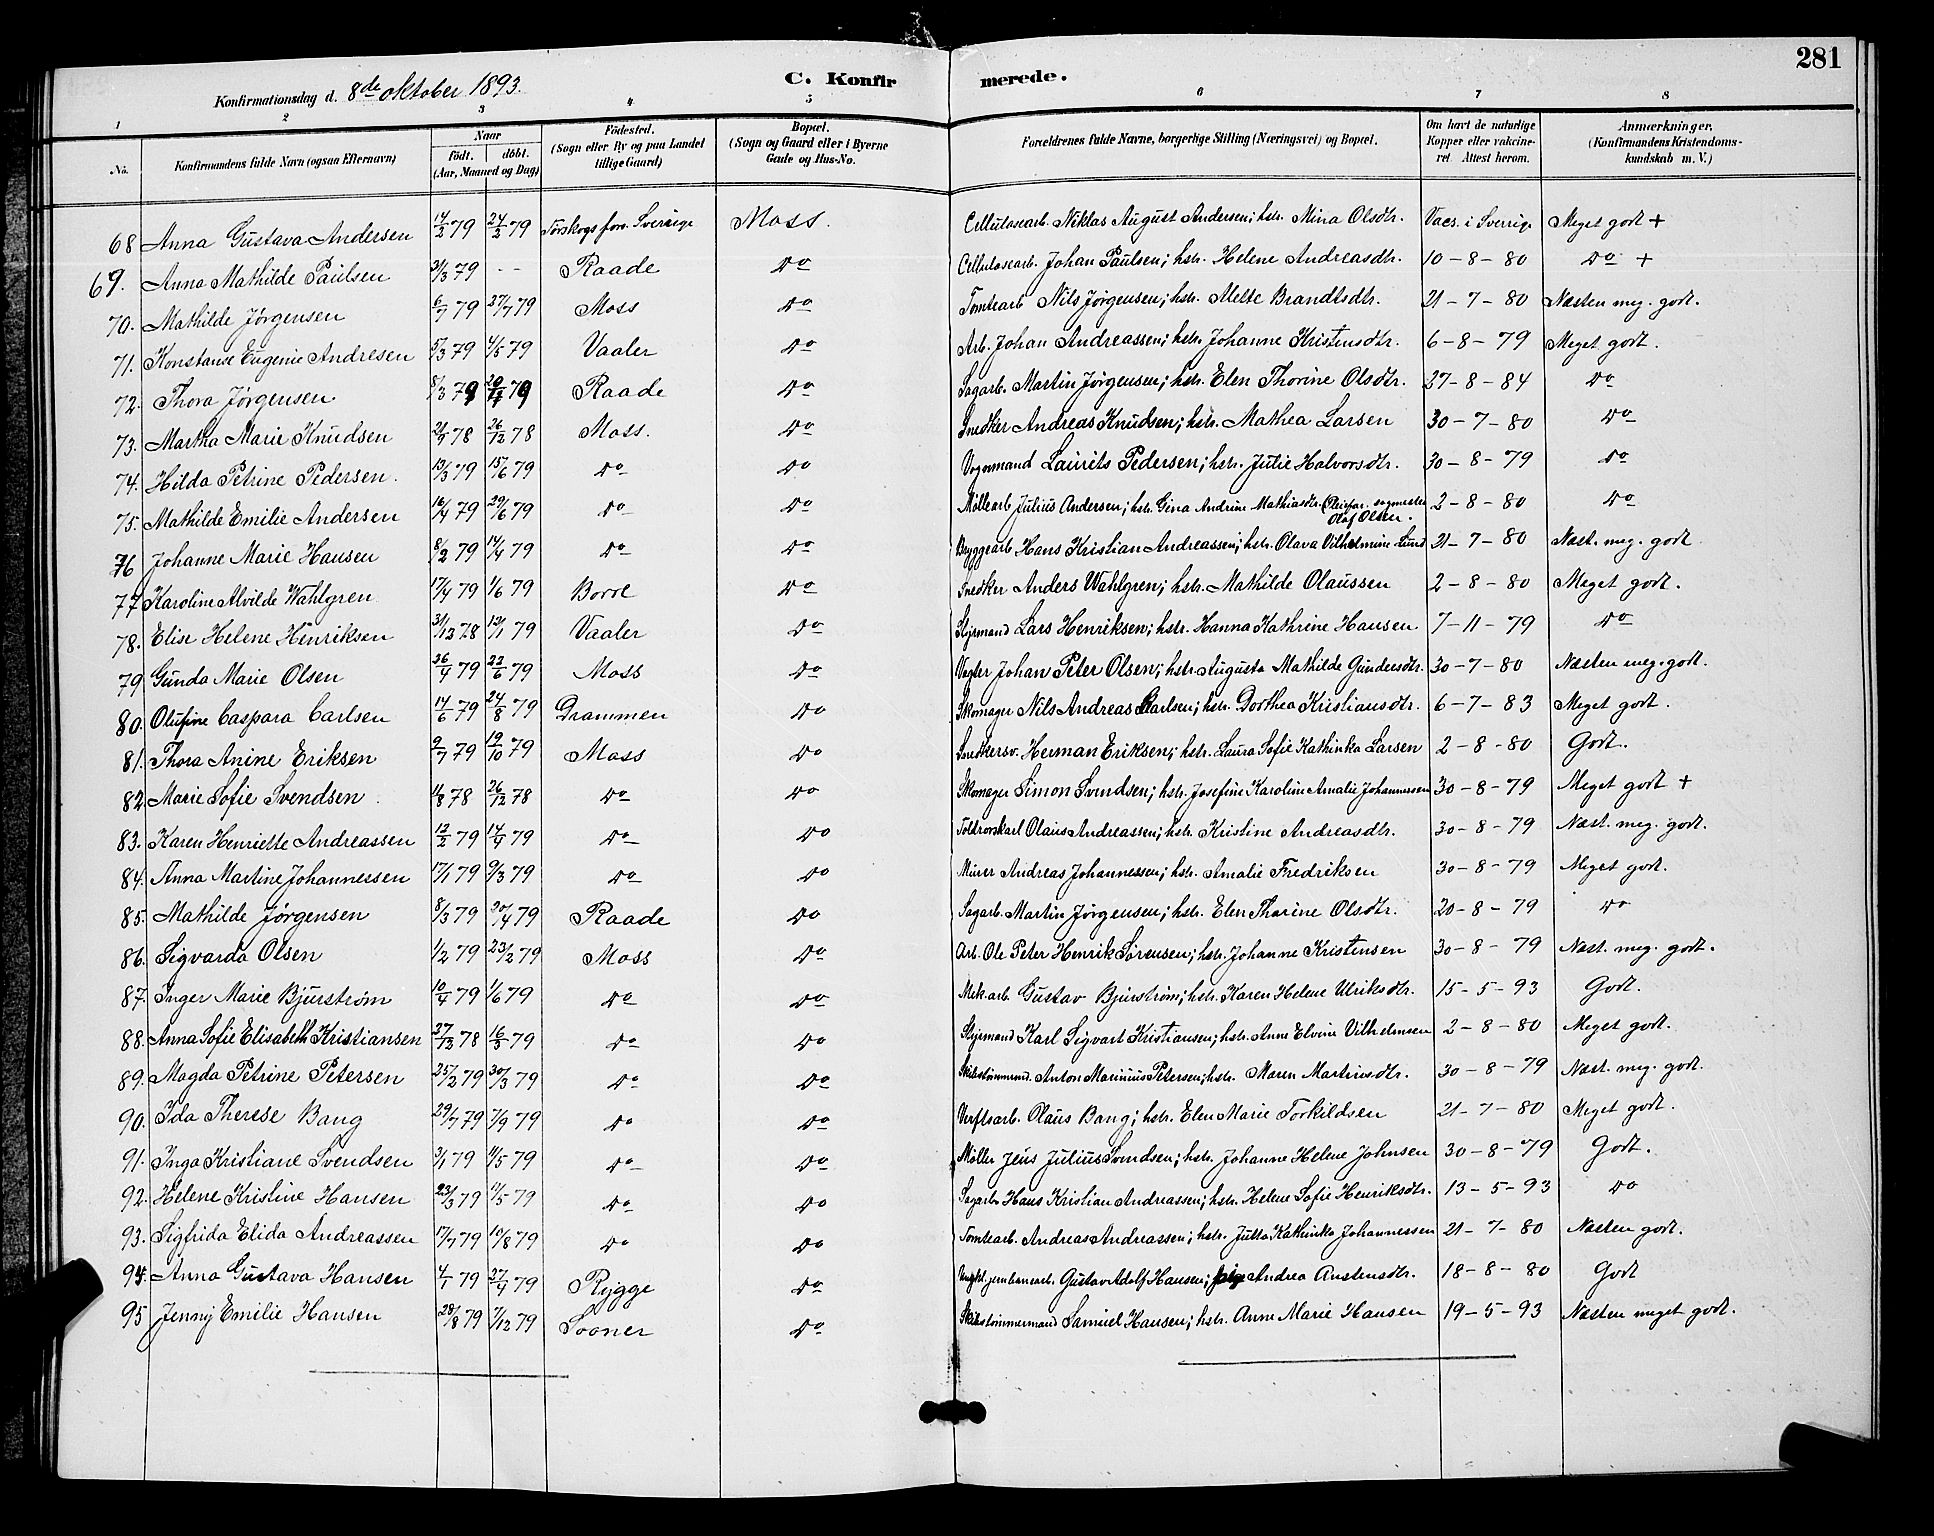 281
Konfirmationsdag d. 8de oktober 1893.
C. Konfirmerede.
1 2 3 4 5 6 7 8
No. Konfirmandens fulde Navn (ogsaa Efternavn) Naar født. døbt. (Aar, Maaned og Dag) Fødested. (Sogn eller By og paa Landet tillige Gaard) Bopæl. (Sogn og Gaard eller i Byerne Gade og Hus-No. Forældrenes fulde Navne, borgerlige Stilling (Næringsvei) og Bopæl. Om havt de naturlige Kopper eller vakcineret. Attest herom. Anmærkninger. (Konfirmandens Kristendomskundskab m. V.)
68 Anna Gustava Andersen 14/2 79 24/2 79 Torskogs fors. Sverige Moss. Cellulosearb. Niklas August Andersen; hstr. Mina Olsdtr. Vacs. i Sverrig. Meget godt +
69. Anna Mathilde Paulsen 31/3 79 - - Raade Do Cellulosearb. Johan Paulsen; hstr. Helene Andreasdtr. 10-8-80 Do +
70. Mathilde Jørgensen 6/7 79 27/7 79 Moss Do Tomtearb Nils Jørgensen; hstr. Mette Brandtsdtr. 21-7-80 Næsten meg. godt.
71. Konstanse Eugenie Andresen 5/3 79 4/5 79 Vaaler Do Arb. Johan Andreassen; hstr. Johanne Kristensdtr. 6-8-79 Meget godt.
72. Thora Jørgensen 8/3 79 20/4 79 Raade Do Sagarb. Martin Jørgensen; hstr. Elen Thorine Olsdtr. 27-8-84 Do
73. Martha Marie Knudsen 21/9 78 26/12 78 Moss. Do Snedker Andreas Knudsen; hstr. Mathea Larsen 30-7-80 Do
74. Hilda Petrine Pedersen. 13/3 79 15/6 79 Do Do Vognmand Laurits Pedersen; hstr. Julie Halvorsdtr. 30-8-79 Do
75. Mathilde Emilie Andersen 16/4 79 29/6 79 Do Do Møllearb Julius Andersen; hstr. Gina Andrine Mathiasdtr. (Pleiefar. sagmester Olaf Olsen. 2-8-80 Do
76 Johanne Marie Hansen 8/2 79 14/4 79 Do Do Bryggearb Hans Kristian Andreassen; hstr. Olava Vilhelmine Lund 21-7-80 Næst. meg. godt
77 Karoline Alvilde Wahlgren 17/4 79 1/6 79 Borre Do Snedker Anders Wahlgren; hstr. Mathilde Olaussen 2-8-80 Meget godt.
78. Elise Helene Henriksen 31/12 78 12/1 79 Vaaler Do Styrmand Lars Henriksen; hstr. Hanna Kathrine Hansen 7-11-79 Do
79 Gunda Marie Olsen 26/4 79 22/6 79 Moss Do Vagter Johan Peter Olsen; hstr. Augusta Mathilde Gundersdtr. 30-7-80 Næsten meg. godt.
80. Olufine Caspara Carlsen 14/6 79 24/8 79 Drammen Do Skomager Nils Andreas Carlsen; hstr. Dorthea Kristiansdtr. 6-7-83 Meget godt.
81. Thora Anine Eriksen 9/7 79 19/10 79 Moss Do Snedkersv. Herman Eriksen; hstr. Laura Sofie Kathinka Larsen 2-8-80 Godt.
82. Marie Sofie Svendsen. 11/8 78 26/12 78 Do Do Skomager Simon Svendsen; hstr. Josefine Karoline Amalie Johannessen 30-8-79 Meget godt +
83. Karen Henriette Andreassen 12/2 79 14/4 79 Do Do Toldroerskarl Olaus Andreassen; hstr. Kristine Andreasdtr. 30-8-79 Næst. meg. godt.
84. Anna Martine Johannessen 17/1 79 9/3 79 Do Do Murer Andreas Johannessen; hstr. Amalie Fredriksen 30-8-79 Meget godt.
85. Mathilde Jørgensen 8/3 79 20/4 79 Raade Do Sagarb. Martin Jørgensen; hstr. Elen Thorine Olsdtr. 20-8-79 Do
86. Sigvarda Olsen 1/2 79 23/2 79 Moss Do Arb. Ole Peter Henrik Sørensen; hstr. Johanne Kristensen 30-8-79 Næst. meg. godt.
87. Inger Marie Bjurstrøm 10/4 79 1/6 79 Do Do Mek. arb. Gustav Bjurstrøm; hstr. Karen Helene Ulriksdtr. 15-5-93 Godt.
88. Anna Sofie Elisabeth Kristiansen 27/12 78 16/3 79 Do Do Styrmand Karl Sigvart Kristiansen; hstr. Anne Elvine Vilhelmsen 2-8-80 Meget godt.
89. Magda Petrine Petersen 25/2 79 30/3 79 Do Do Skibstømmermd. Anton Marinius Petersen; hstr. Maren Martinsdtr. 30-8-79 Næst. meg. godt.
90. Ida Therese Bang 29/7 79 7/9 79 Do Do Verftsarb. Olaus Bang; hstr. Elen Marie Torkildsen 21-7-80 Meget godt.
91. Inga Kristiane Svendsen 3/1 79 11/5 79 Do Do Møller Jens Julius Svendsen; hstr. Johanne Helene Johnsen 30-8-79 Godt.
92. Helene Kristine Hansen 23/3 79 11/5 79 Do Do Sagarb Hans Kristian Andreassen; hstr. Helene Sofie Henriksdtr. 13-5-93 Do
93. Sigfrida Elida Andreassen 17/7 79 10/8 79 Do Do Tomtearb. Andreas Andreassen; hstr. Jutta Kathinka Johannessen 21-7-80 Næsten godt.
94. Anna Gustava Hansen 4/1 79 27/4 79 Rygge Do Ungkl jernbanearb. Gustav Adolf Hansen; pige Andrea Anstensdtr. 18-8-80 Godt
95 Jenny Emilie Hansen 28/8 79 7/12 79 Sooner Do Skibstømmermand Samuel Hansen; hstr. Anne Marie Hansen 19-5-93 Næsten meget godt.